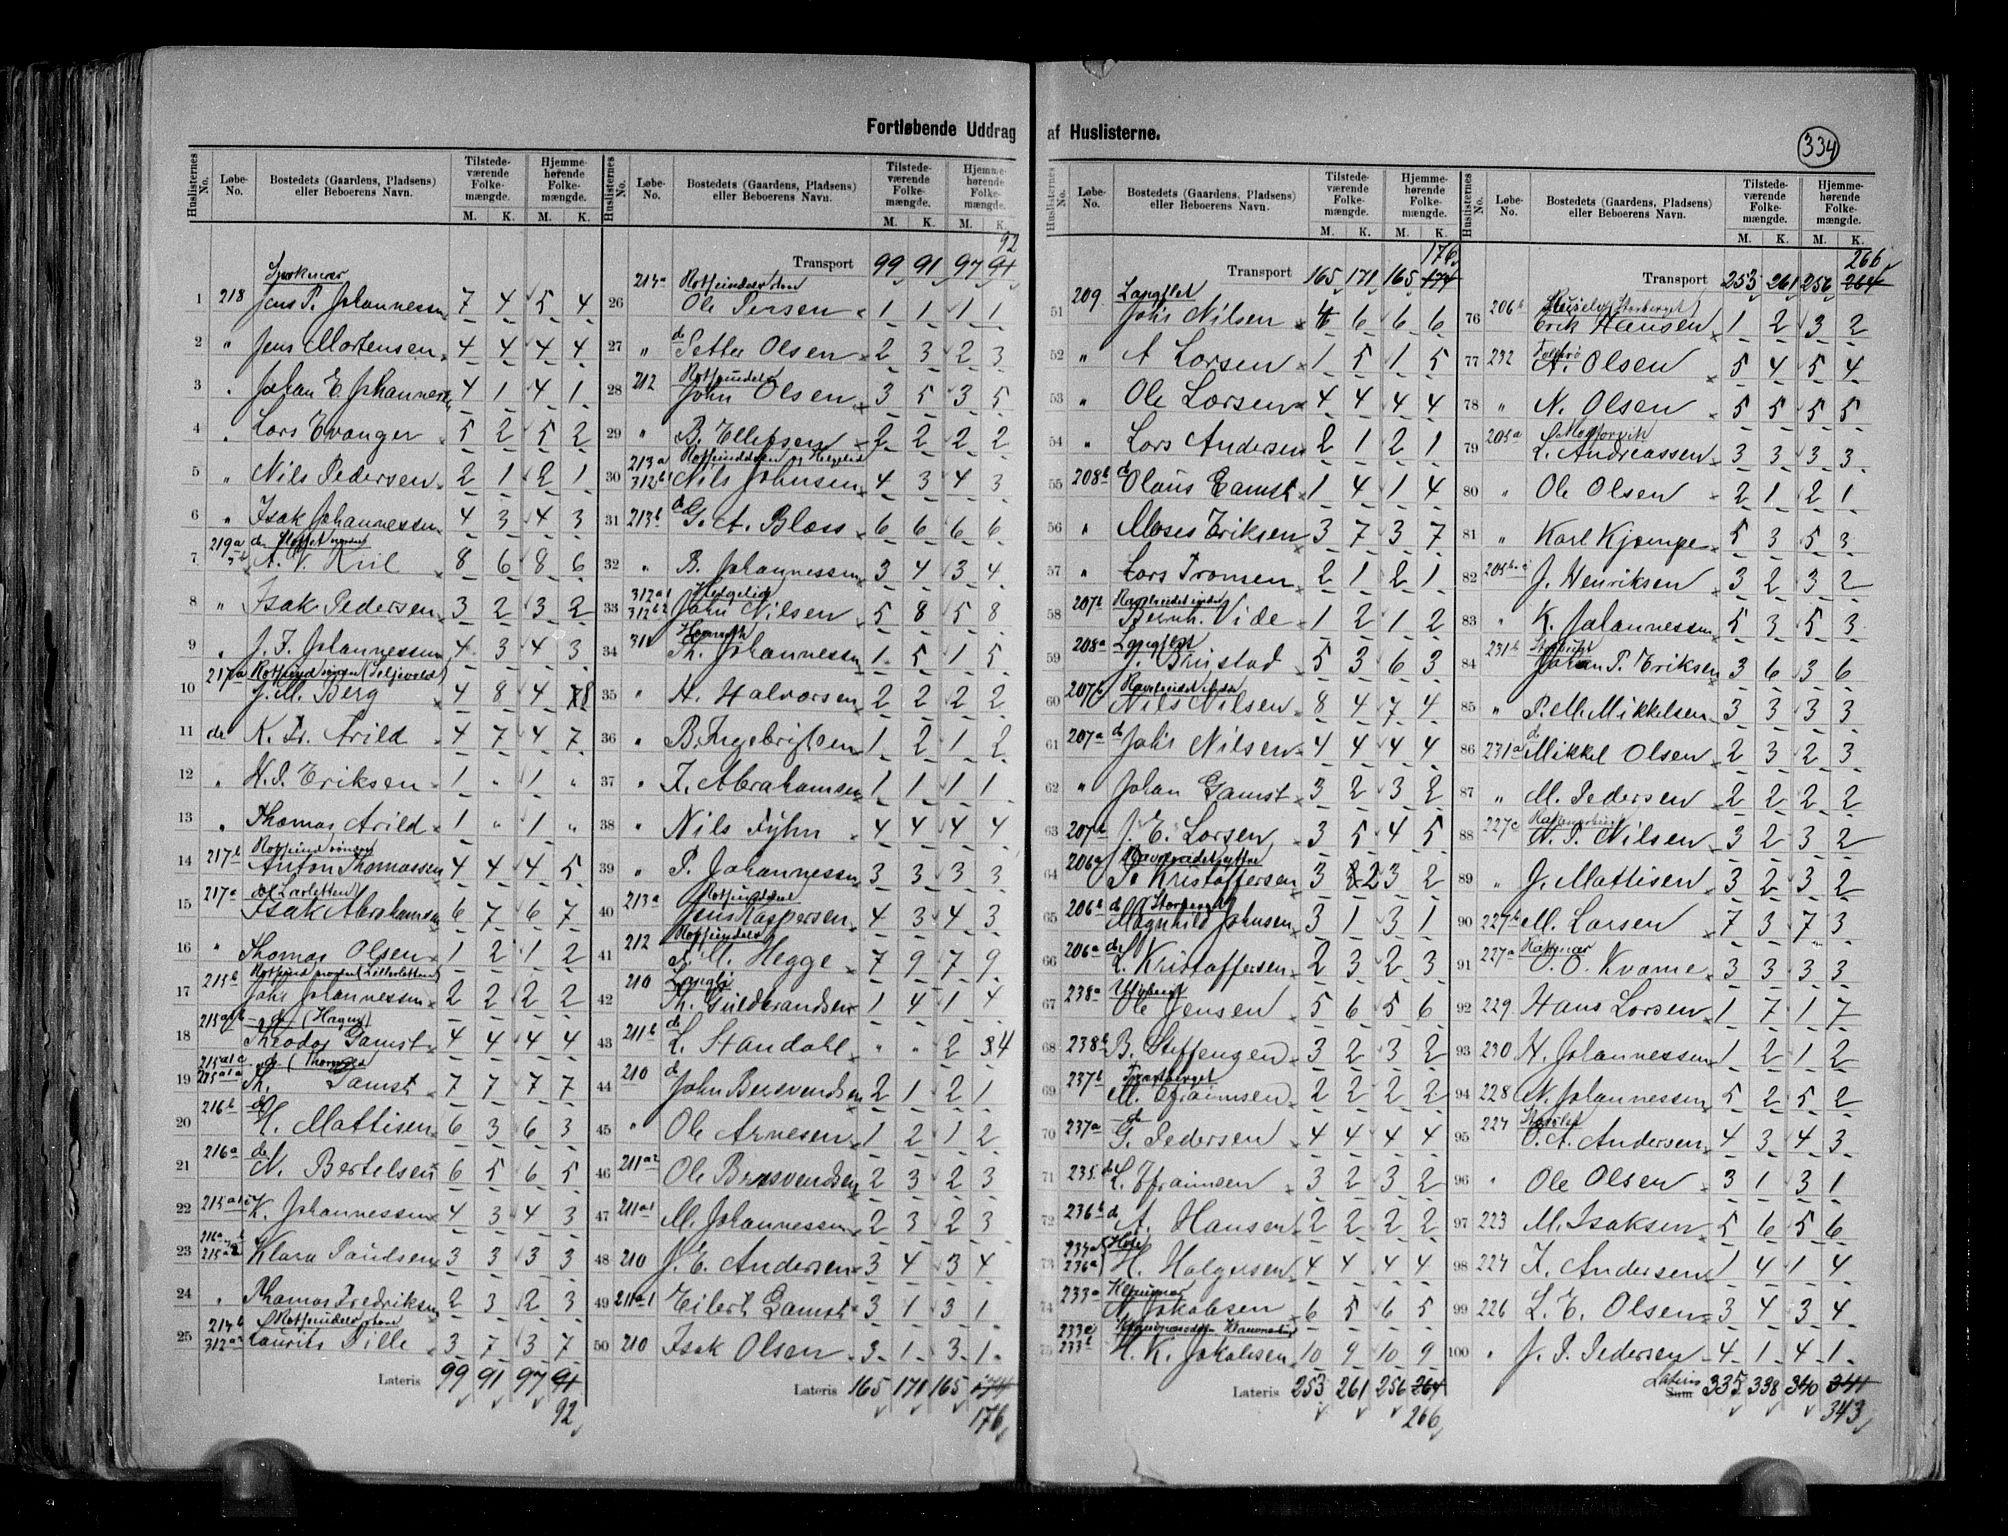 Fortløbende Uddrag af Huslisterne.
334
Huslisternes No. Løbe-No. Bostedets (Gaardens, Pladsens) eller Beboerens Navn. Tilstede-værende Folke-mængde. Hjemme-hørende Folke-mængde.
M. K. M. K.
1 218 Jens P. Johannessen 7 4 5 4
2 " Jens Mortensen 4 4 4 4
3 " Johan E. Johannesen 4 1 4 1
4 " Lars Evanger 5 2 5 2
5 " Nils Pedersen 2 1 2 1
6 " Isak Johannessen 4 3 4 3
7 219a A. V. Kiil 8 6 8 6
8 " Isak Pedersen 3 2 3 2
9 " J. F. Johannessen 4 3 4 3
10 217a J. M. Berg 4 8 4 8
11 do K. Fr. Arild 4 7 4 7
12 " H. J. Eriksen 1 " 1 "
13 " Thomas Arild 1 " 1 "
14 217b Anton Thomassen 4 4 4 5
15 217a Isak Abrahamsen 6 7 6 7
16 " Thomas Olsen 1 2 1 2
17 215b Johs Johannessen 2 2 2 2
18 (Haugen) Theodor Gamst 4 4 4 4
19 Th. Gamst 7 7 7 7
20 216b do H. Mattisen 6 3 6 3
21 216a do N. Bertelsen 6 5 6 5
22 K. Johannessen 4 3 4 3
23 Klara Paulsen 3 3 3 3
24 " Thomas Fredriksen 2 3 2 3
25 Laurits Dille 3 7 3 7
Lateris 99 91 97 91
92
Huslisternes No. Løbe-No. Bostedets (Gaardens, Pladsens) eller Beboerens Navn. Tilstede-værende Folke-mængde. Hjemme-hørende Folke-mængde.
M. K. M. K.
92
Transport 99 91 97 91
26 Ole Persen 1 1 1 1
27 " do Petter Olsen 2 3 2 3
28 212 John Olsen 3 5 3 5
29 " B. Ellefsen 2 2 2 2
30 213a 312b1 Nils Johnsen 4 3 4 3
31 213b G. A. Blass 6 6 6 6
32 " B. Johannessen 3 4 3 4
33 312a1 312b2 Helgelid John Nilsen 5 8 5 8
34 311 Th. Johannessen 1 5 1 5
35 " A. Halvorsen 2 2 2 2
36 " B. Ingebrigtsen 1 2 1 2
37 " I. Abrahamsen 1 1 1 1
38 " Nils Fyhn 4 4 4 4
39 " P. Johannessen 3 3 3 3
40 213a Jens Kaspersen 4 3 4 3
41 212 J. M. Hegge 7 9 7 9
42 210 Th. Guldbrandsen 1 4 1 4
43 211b do L. Standahl " " 2 4
44 210 do John Bersvendsen 2 1 2 1
45 " Ole Arnesen 1 2 1 2
46 211a2 Ole Bersvendsen 2 3 2 3
47 211a1 M. Johannessen 2 3 2 3
48 210 J. E. Andersen 3 4 3 4
49 211a1 Eilert Gamst 3 1 3 1
50 210 Isak Olsen 3 1 3 1
Lateris 165 171 165 174
176
Huslisternes No. Løbe-No. Bostedets (Gaardens, Pladsens) eller Beboerens Navn. Tilstede-værende Folke-mængde. Hjemme-hørende Folke-mængde.
M. K. M. K.
176
Transport 165 171 165 174
51 209 Langslet Johs Nilsen 6 6 6 6
52 " A. Larsen 1 5 1 5
53 " Ole Larsen 4 4 4 4
54 " Lars Andersen 2 1 2 1
55 208b do Olaus Gamst 1 4 1 4
56 " Moses Eriksen 3 7 3 7
57 " Lars Tronsen 2 1 2 1
58 207b Bernh. Vide 1 2 1 2
59 208a Langslet J. Brustad 5 3 6 3
60 207b Nils Nilsen 8 4 7 4
61 207a do Johs Nilsen 4 4 4 4
62 " Johan Gamst 3 2 3 2
63 207b J. E. Larsen 3 5 4 5
64 206a P. Kristoffersen 3 2 3 2
65 206b do Magnhild Johnsen 3 1 3 1
66 206a do L. Kristoffersen 2 3 2 3
67 238a Ole Jensen 5 6 5 6
68 238b B. Steffensen 3 2 3 2
69 237b M. Efraimsen 2 2 2 2
70 237a do G. Pedersen 4 4 4 4
71 235 do L. Efraimsen 3 2 3 2
72 236b do A. Hansen 2 2 2 2
73 234a 236a H. Halgersen 4 4 4 4
74 233a N. Jakobsen 6 5 6 5
75 233a 233b H. K. Jakobsen 10 9 10 9
Lateris 253 261 256 264
266
Huslisternes No. Løbe-No. Bostedets (Gaardens, Pladsens) eller Beboerens Navn. Tilstede-værende Folke-mængde. Hjemme-hørende Folke-mængde.
M. K. M. K.
266
Transport 253 261 256 264
76 206b Erik Hansen 1 2 3 2
77 232 A. Olsen 5 4 5 4
78 " N. Olsen 5 5 5 5
79 205a L. Andreassen 3 3 3 3
80 " Ole Olsen 2 1 2 1
81 " Karl Kjempe 5 3 5 3
82 J. Henriksen 3 2 3 2
83 " K. Johannessen 5 3 5 3
84 231b Johan P. Eriksen 3 6 3 6
85 " P. M. Mikkelsen 3 3 3 3
86 231a do Mikkel Olsen 2 3 2 3
87 " M. Pedersen 2 2 2 2
88 227c N. P. Nilsen 3 2 3 2
89 " J. Mattisen 3 2 3 2
90 227b M. Larsen 7 3 7 3
91 227a O. O. Kvame 3 3 3 3
92 229 Hans Larsen 1 7 1 7
93 230 H. Johannessen 1 2 1 2
94 228 N. Johannessen 5 2 5 2
95 224 O. A. Andersen 4 3 4 3
96 " Ole Olsen 3 1 3 1
97 223 M. Isaksen 5 6 5 6
98 224 I. Andersen 1 4 1 4
99 226 L. E. Olsen 3 4 3 4
100 " J. P. Pedersen 4 1 4 1
Lateris Sum 335 338 340 341
343